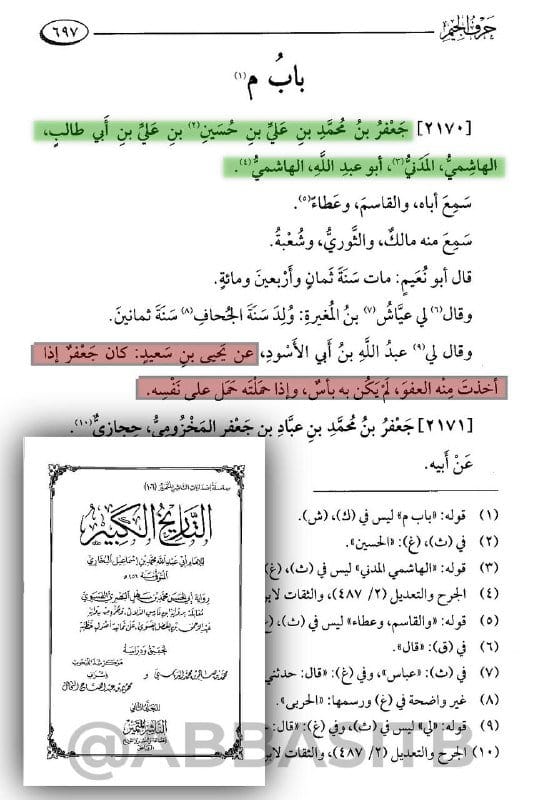 حَرْفُ الجِيم
٦٩٧
بابُ م (١)
[٢١٧٠] جَعْفَرُ بنُ مُحَمَّدِ بنِ عَلِيِّ بنِ حُسَينِ (٢) بنِ عَلِيِّ بنِ أَبي طالبٍ،
الهاشِميُّ، المَدَنيُّ (٣)، أبو عبدِ اللَّهِ، الهاشميُّ (٤).
سَمِعَ أباه، والقاسمَ، وعَطاءً (٥).
سَمِعَ منه مالكٌ، والثَّوريُّ، وشُعْبةُ.
قال أبو نُعَيمٍ: مات سَنَةَ ثَمانٍ وأَرْبعينَ ومائةٍ.
وقال (٦) لي عيَّاشُ (٧) بنُ المُغيرةِ: وُلِدَ سَنَةَ الجُحافِ (٨) سَنَةَ ثمانينَ.
وقال لي (٩) عبدُ اللَّهِ بنُ أبي الأسْودِ، عن يَحيى بنِ سَعيدٍ: كان جَعْفرٌ إذا
أخذتَ مِنْه العفوَ، لَمْ يَكُن به بأسٌ، وإذا حَمَلْتَه حَمَل على نَفْسِه.
[٢١٧١] جَعْفَرُ بنُ مُحَمَّدِ بنِ عبَّادِ بنِ جَعْفرٍ المَخْزُوميُّ، حِجازيٌّ (١٠).
عَنْ أَبيه.
(١) قوله: «باب م» ليس في (ك)، (ش).
(٢) في (ث)، (غ): «الحسين».
(٣) قوله: «الهاشمي المدني» ليس في (ث)، (غ)
(٤) الجرح والتعديل (٢/ ٤٨٧)، والثقات لابن
(٥) قوله: «والقاسم، وعطاء» ليس في (ث)،
(٦) في (ق): «قال».
(٧) في (ث): «عباس»، وفي (غ): «قال: حدثني
(٨) غير واضحة في (غ) ورسمها: «الحربى».
(٩) قوله: «لي» ليس في (ث)، وفي (غ): «قال:
(١٠) الجرح والتعديل (٢/ ٤٨٧)، والثقات لابن
التَّاريخُ الكَبير
للإمام أبي عبد الله محمد بن إسماعيل البخاري
تحقيق ودراسة
محمد بن صالح بن محمد الدباسي و
المجلد الثاني
الناشر المتميز
@ABBASITB